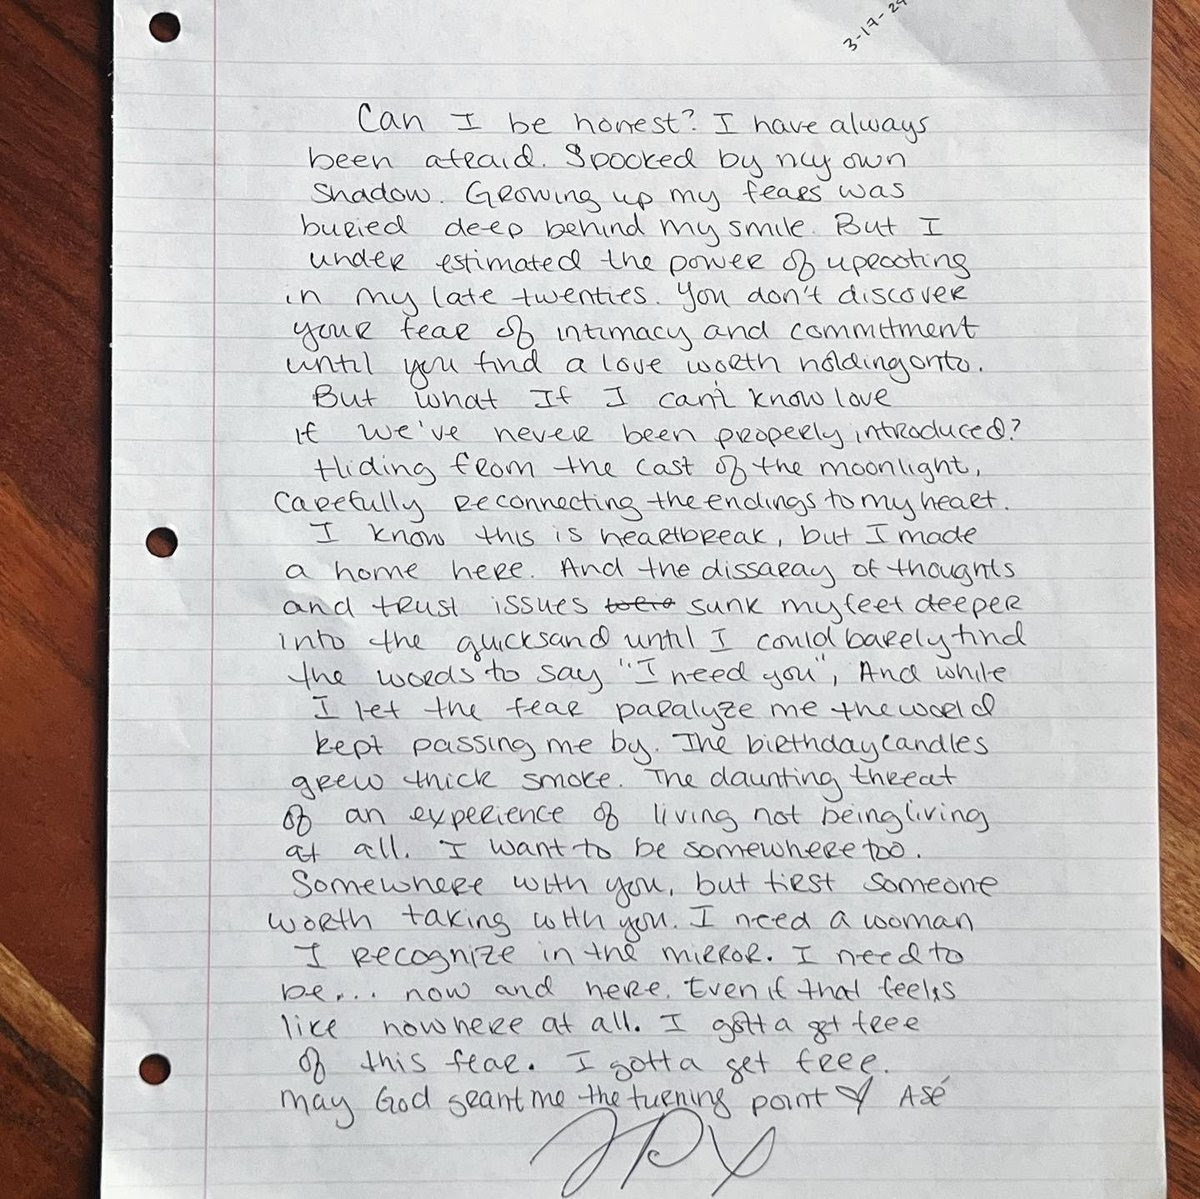 3-17-24
Can I be honest? I have always
been afraid. Spooked by my own
shadow. Growing up my fears was
buried deep behind my smile. But I
under estimated the power of uprooting
in my late twenties. You don't discover
your fear of intimacy and commitment
until you find a love worth holding onto.
But what If I can't know love
if we've never been properly introduced?
Hiding from the cast of the moonlight,
Carefully reconnecting the endings to my heart.
I know this is heartbreak, but I made
a home here. And the dissaray of thoughts
and trust issues sunk my feet deeper
into the quicksand until I could barely find
the words to say "I need you", And while
I let the fear paralyze me the world
kept passing me by. The birthday candles
grew thick smoke. The daunting threat
of an experience of living not being living
at all. I want to be somewhere too.
Somewhere with you, but first someone
worth taking with you. I need a woman
I recognize in the mirror. I need to
be... now and here. Even if that feels
like nowhere at all. I gotta get free
of this fear. I gotta get free.
may God grant me the turning point ♡ Asé